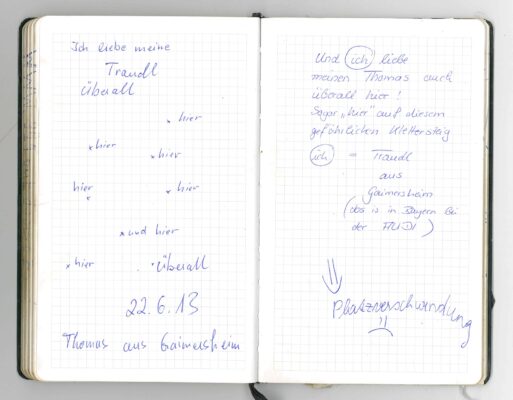 Ich liebe meine
Traudl
überall
x hier
x hier
x hier
hier
x hier
x und hier
x hier
überall
22.6.13
Thomas aus Gaimersheim
Und ich liebe
meinen Thomas auch
überall hier!
Sogar „hier" auf diesem
gefährlichen Klettersteig
ich = Traudl
aus
Gaimersheim
(das is in Bayern bei
der AUDI)
Platzverschwendung